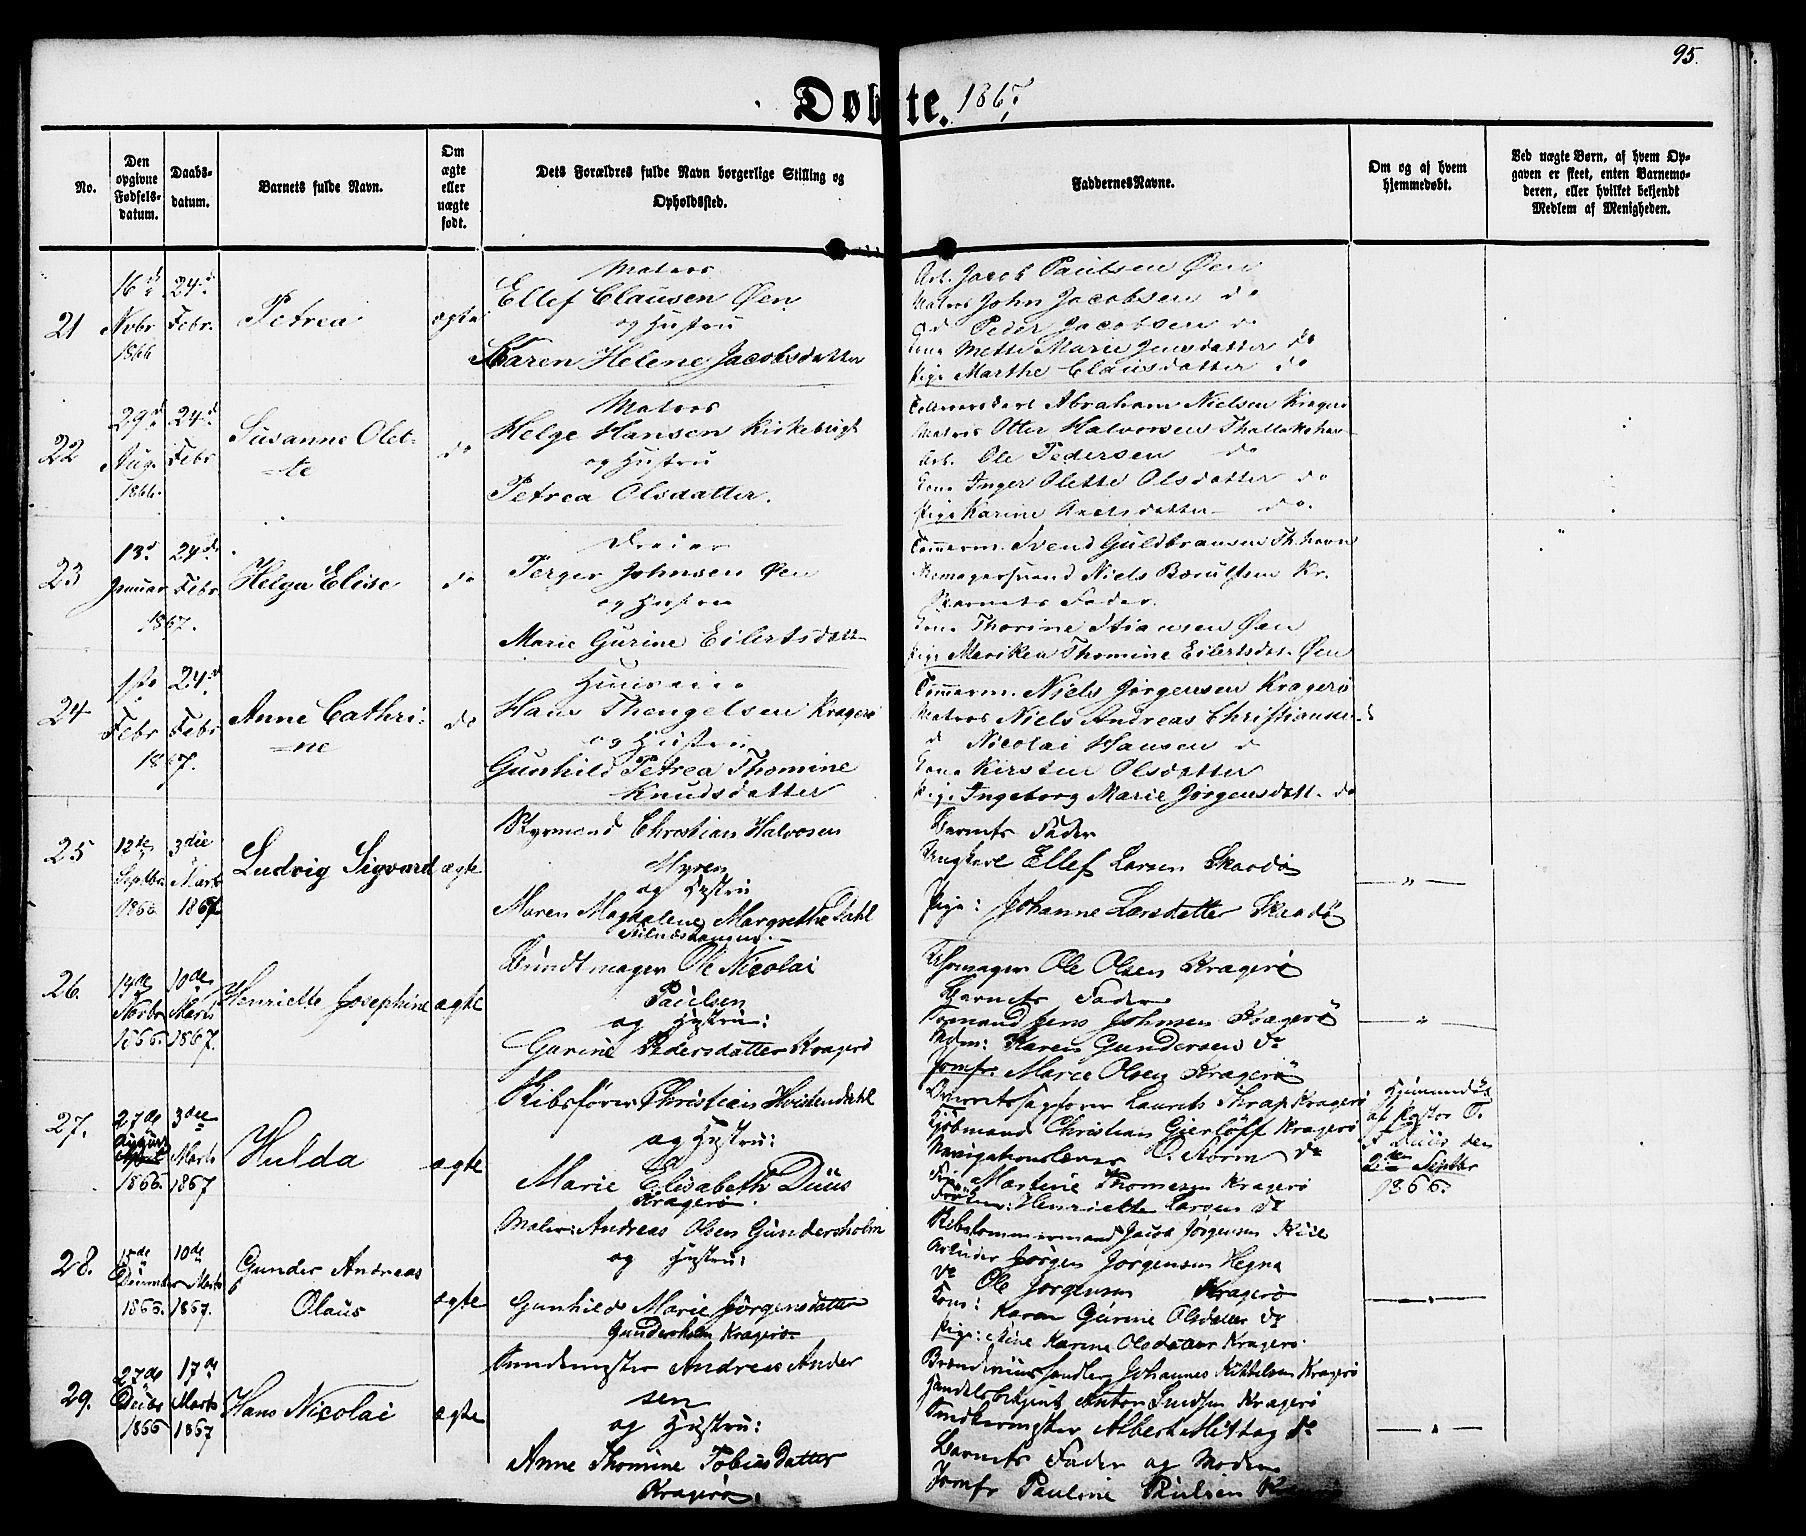 95.
Døbte. 1867.
No.
Den opgivne Fødsels-datum.
Daabs-datum.
Barnets fulde Navn.
Om ægte eller uægte født.
Dets Forældres fulde Navn borgerlige Stilling og Opholdssted.
Faddernes Navne.
Om og af hvem hjemmedøbt.
Ved uægte Børn, af hvem Op-
gaven er skeet, enten Barnemo-
deren, eller hvilket bekjendt
Medlem af Menigheden.
21
16d Novbr 1866
24d Febr.
Petrea
ægte
Matros
Ellef Clausen Øen
og Hustru
Karen Helene Jacobsdatter
Arb. Jacob Paulsen Øen
Matros John Jacobsen do
Peder Jacobsen do
Kone Mette Marie Jensdatter do
Pige Marthe Clausdatter do
22
29d Aug. 1866.
24d Febr
Susanne Olet-
te
do
Matros
Helge Hansen
og Hustru
Petrea Olsdatter.
Abraham Nielsen Kragerø
Matros Otter Halvorsen
Arb. Ole Pedersen do
Kone Inger Olette Olsdatter do
Pige Karine do.
23
13d Januar 1867.
24d Febr
Helga Elise
do
Terger Johnsen Øen
og Hustru
Marie Gurine Eilertsdatt
Tømmerm. Svend Guldbransen
Niels Kr.
Barnets Fader.
Kone Thorine Øen
Pige Mariken Thomine Eilertsdat. Øen
24
1ste Febr 1867.
24d Febr
Anne Cathri-
ne
do
Hans Thengelsen Kragerø
og Hustru
Gunhild Petrea Thomine
Knudsdatter
Tømmerm. Niels Jørgensen Kragerø
Matros Niels Andreas Christiansen
d Nicolai Hansen d
Kone Kirsten Olsdatter
Pige Ingeborg Marie Jørgensdatt. do
25
12te Septbr 1866
3die Marts 1867
Ludvig Sigvard
ægte
Styrmand Christian Halvorsen
Myren
og Hustru
Maren Magdalene Margrethe Dahl
Barnets Fader
Ungkarl Ellef Larsen Skaadø
Pige: Johanne Larsdatter Skaadø
"
26.
14de Novbr 1866.
10de Marts 1867.
Henriette Josephine
ægte
Bundtmager Ole Nicolai
Paulsen
og Hustru:
Gurine Pedersdatter Kragerø
Ole Olsen Kragerø
Barnets Fader
Formand Jens Johnsen Kragerø
Mdm: Karen Gundersen do
Jomfr. Marie Olsen Kragerø
"
27.
27de August 1866.
3die Marts 1867
Hulda
ægte
Skibsfører Christian Hvistendahl
og Hustru:
Marie Elisabeth Duus
Kragerø.
Overretssagfører Laurits Kragerø
Kjøbmand Christian Gierløff Kragerø
Navigationslærer O. Storm do
Martine Thomesen Kragerø
Frøken: Henriette Larsen do
Hjemmedøbt
af Pastor
den
2den Septbr
1866.
28.
15de December 1866.
10de Marts 1867.
Gunder Andreas
Olaus
ægte
Matros: Andreas Olsen Gundersholm
og Hustru:
Gunhild Marie Jørgensdatter
Gundersholm Kragerø.
Skibstømmermand Jacob Jørgensen
Arbeider Jørgen Jørgensen Hegna
do Ole Jørgensen Kragerø
Kone: Karen Gurine Olsdatter do
Pige: Karine Olsdatter Kragerø.
"
29.
27de Decbr 1866
17de Marts 1867
Hans Nicolai
ægte
Andreas Ander
sen
og Hustru:
Anne Thomine Tobiasdatter
Kragerø.
Johannes Kittelsen Kragerø
Handelsbetjent Anton Kragerø
Snedkermester Albert do
Barnets Fader og Moder
Jomfr Pauline Paulsen
"